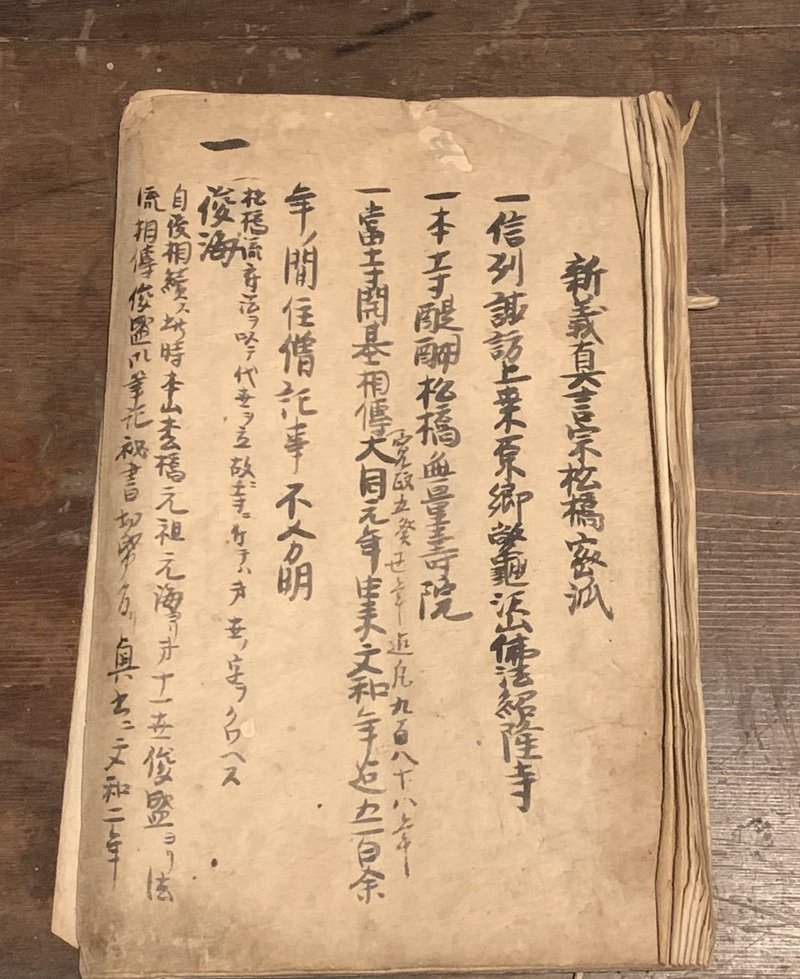 新義真言宗松橋密派
一信列諏訪上桑原郷鼈沢山佛法紹隆寺
一本寺醍醐松橋無量壽院
寛政五癸丑年迠凡九百八十八年
一當寺開基相傳大同元年由来文和年迠五百余
年ノ間住僧記事不分明
一松橋流意法ヲ以テ代世ヲ立故ニ
一俊海
自俊相續ス此時本山松橋元祖元海ヨリ第十一世俊盛ヨリ法
流相傳俊盛御筆祀秘書 奥書ニ文和二年